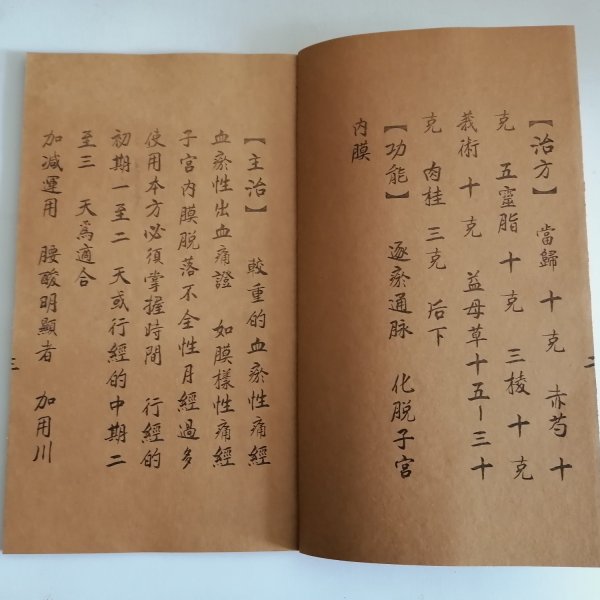 【治方】 當歸 十 克 赤芍 十
克 五靈脂 十 克 三棱 十 克
莪術 十 克 益母草十五—三十
克 肉桂 三克 后下
【功能】 逐瘀通脉 化脱子宮
内膜
二
【主治】 較重的血瘀性痛經
血瘀性出血痛證 如膜樣性痛經
子宮内膜脱落不全性月經過多
使用本方必須掌握時間 行經的
初期一至二 天或行經的中期二
至三 天爲適合
加减運用 腰酸明顯者 加用川
三